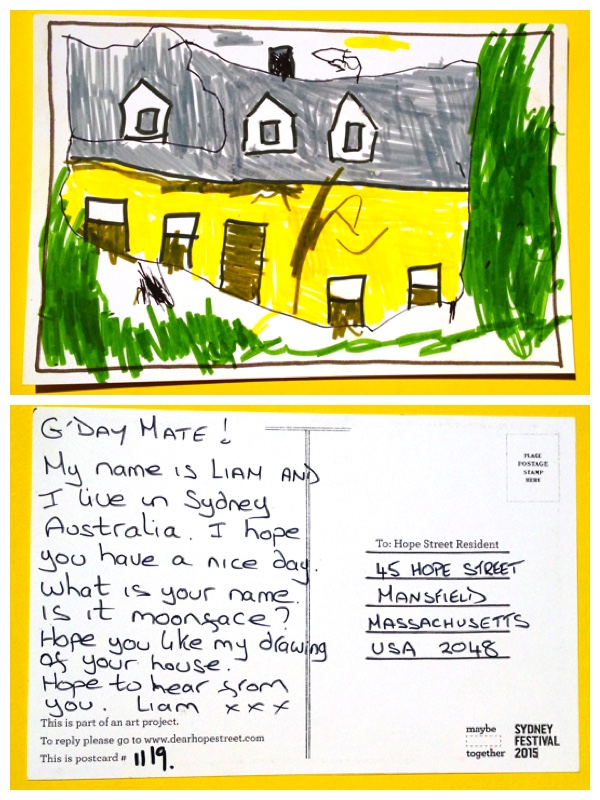 G'DAY MATE!
My name is LIAM AND
I live in Sydney
Australia. I hope
you have a nice day.
What is your name.
Is it moonface?
Hope you like my drawing
of your house.
Hope to hear from
you. Liam x x x
This is part of an art project.
To reply please go to www.dearhopestreet.com
This is postcard # 1119.
PLACE
POSTAGE
STAMP
HERE
To: Hope Street Resident
45 HOPE STREET
MANSFIELD
MASSACHUSETTS
USA 2048
maybe
together
SYDNEY
FESTIVAL
2015